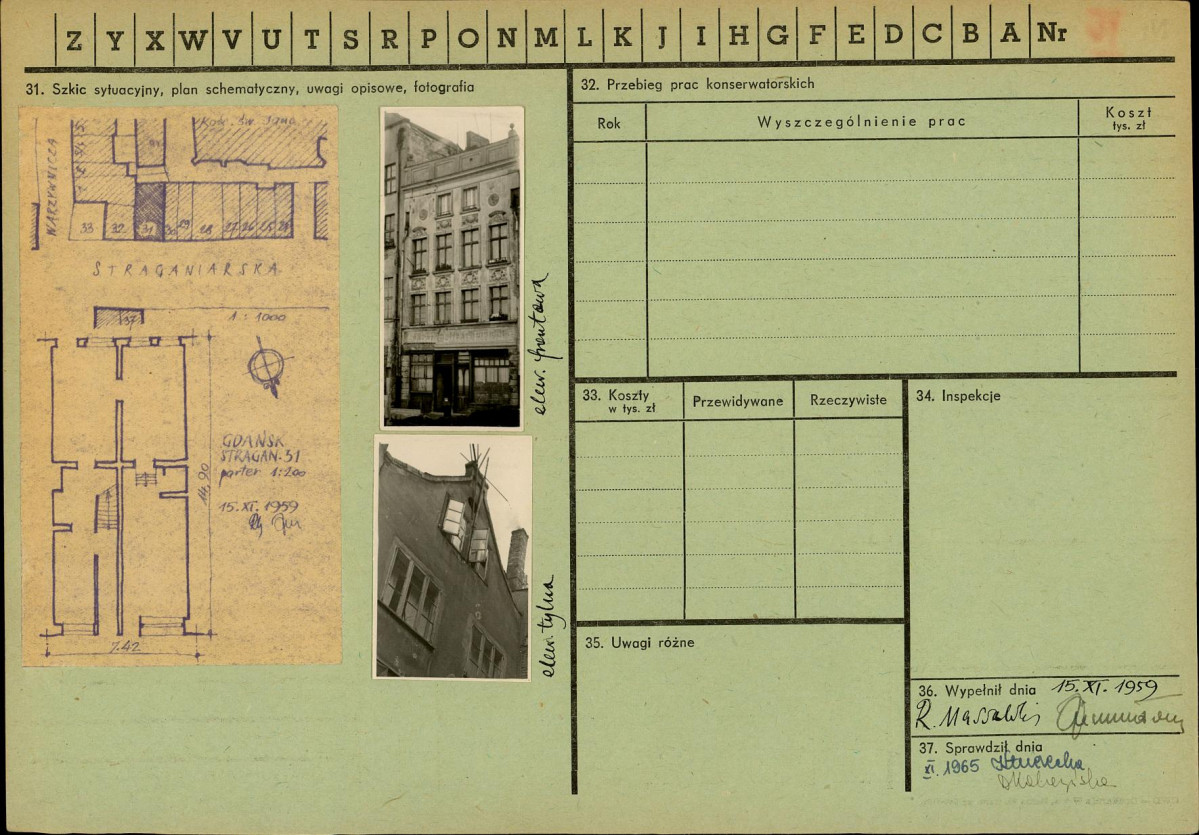 Z Y X W V U T S R P O N M L K J I H G F E D C B A Nr
31. Szkic sytuacyjny, plan schematyczny, uwagi opisowe, fotografia
Kość. św. Jana
WARZYWNICZA
33 32 31 30 29 28 27 26 25 24
STRAGANIARSKA
37
1 : 1000
GDAŃSK
STRAGAN. 31
parter 1:200
15. XI. 1959
14,90
7.42
elew. frontowa
elew. tylna
32. Przebieg prac konserwatorskich
Rok
Wyszczególnienie prac
Koszt
tys. zł
33. Koszty
w tys. zł
Przewidywane
Rzeczywiste
34. Inspekcje
35. Uwagi różne
36. Wypełnił dnia 15. XI. 1959
R. Massalski
37. Sprawdził dnia
XI. 1965